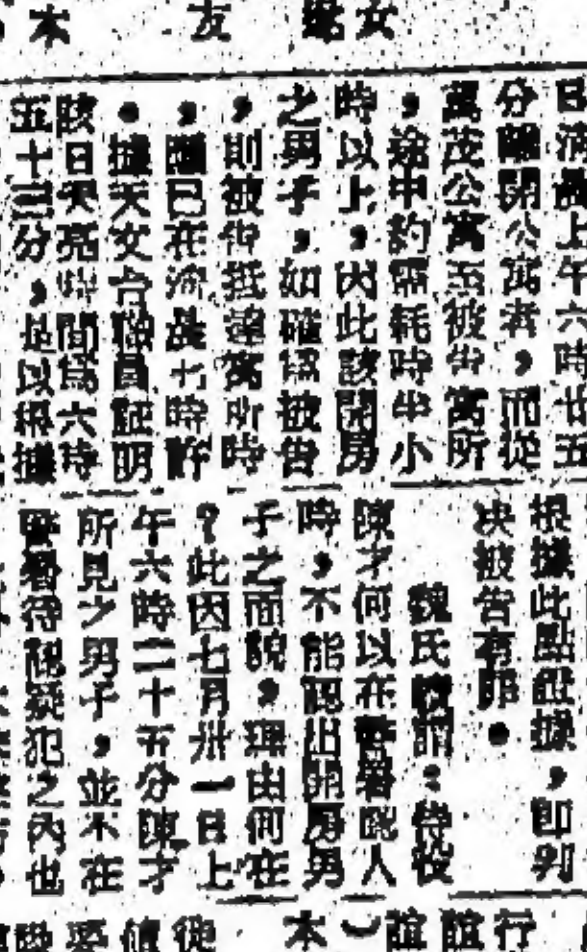 日清晨上午六時廿五
分離開公寓者，而從
萬茂公寓至被告寓所
，途中約需耗時半小
時以上，因此該開房
之男子，如確係被告
，則被告抵達寓所時
，已在清晨七時許
。據天文台職員証明
該日天亮時間為六時
五十三分，是以根據
根據此點證據，即判
决被告有罪。
魏氏續謂：待役
陳才何以在警署認人
時，不能認出開房男
子之面貌，理由何在
？此因七月卅一日上
午六時二十五分陳才
所見之男子，並不在
警署待認疑犯之內也